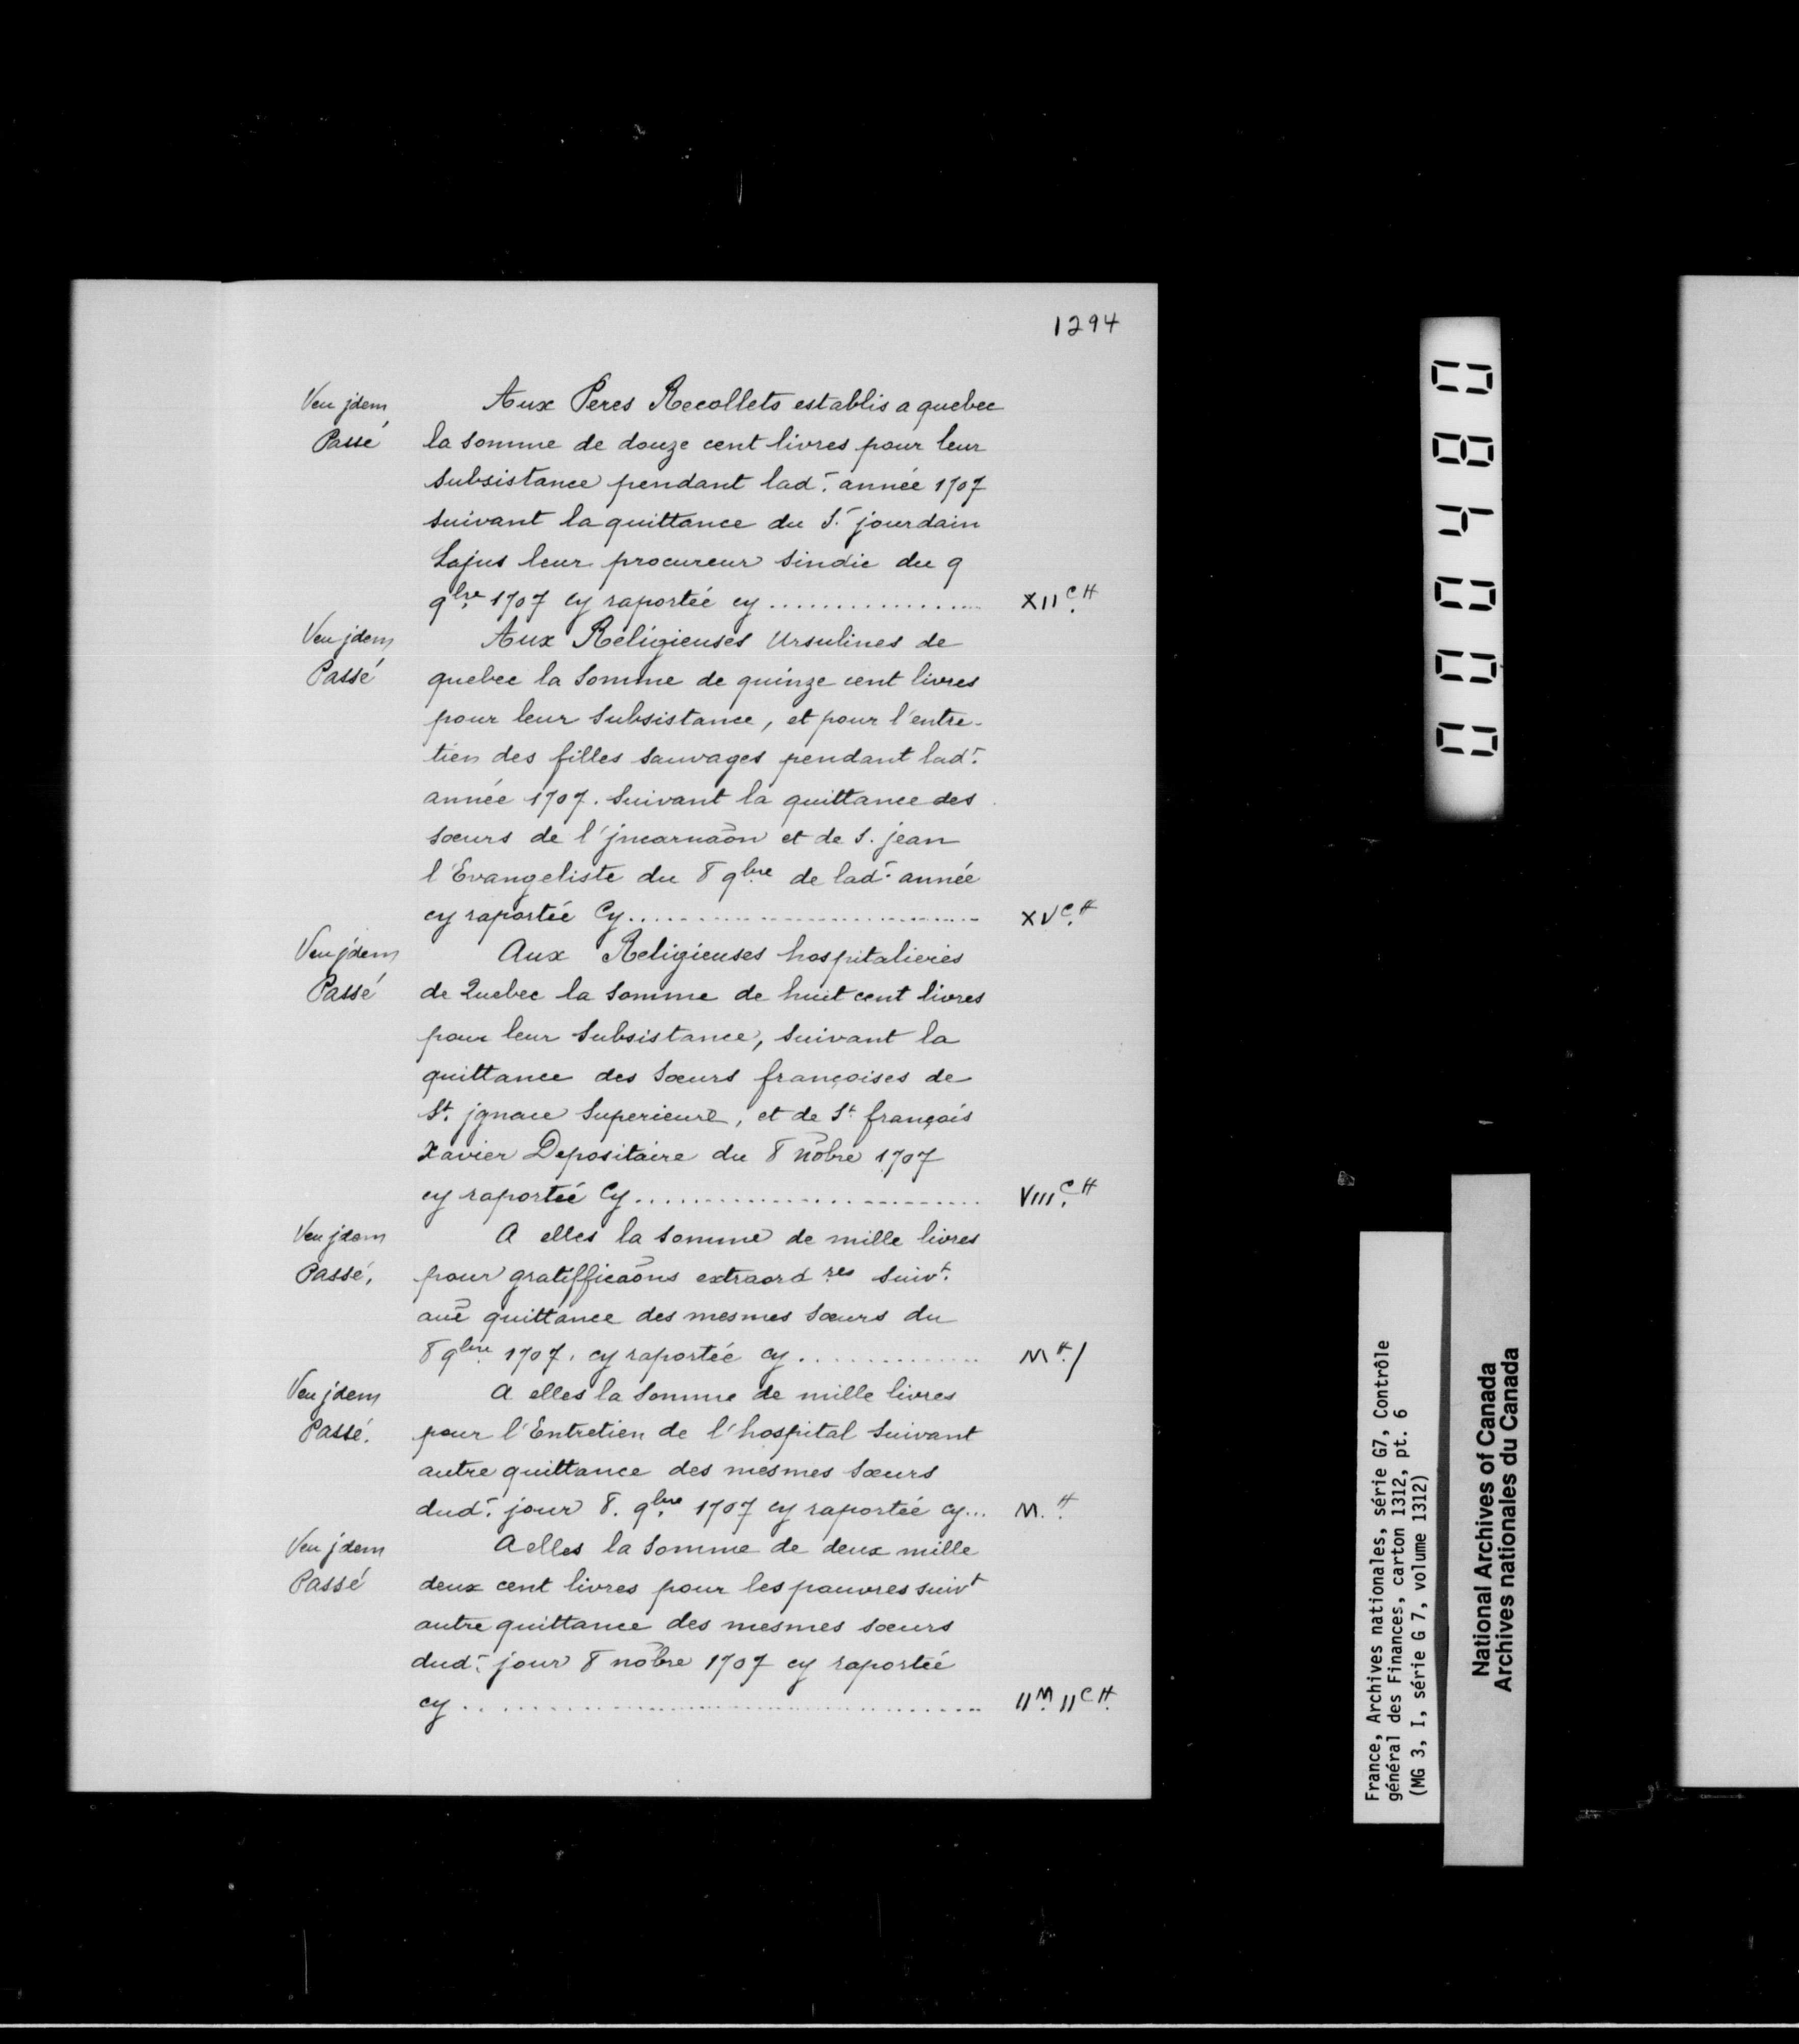 1294
Veu jdem Aux Peres Recollets establis a quebec
Passé la somme de douze cent livres pour leur
subsistance pendant lad.^t année 1707
suivant la quittance du S.^r jourdain
Lajus leur procureur sindic du 9
9^bre 1707 cy raportée cy .................. XII^c.^tt
Veu jdem Aux Religieuses Ursulines de
Passé quebec la somme de quinze cent livres
pour leur subsistance, et pour l'entre-
tien des filles sauvages pendant lad.^t
année 1707. suivant la quittance des
sœurs de l'jncarnaõn et de S. jean
l'Evangeliste du 8 9^bre de lad.^t année
cy raportée Cy.............................. XV^c.^tt
Veu jdem Aux Religieuses hospitalieres
Passé de Quebec la somme de huit cent livres
pour leur subsistance, suivant la
quittance des sœurs françoises de
S^t. jgnace Superieure, et de S^t. françois
Xavier Depositaire du 8 nõbre 1707
cy raportée Cy.............................. VIII^c.^tt
Veu jdem A elles la somme de mille livres
Passé, pour gratifficaõns extraord^res suiv^t.
aũe quittance des mesmes sœurs du
8 9^bre 1707. cy raportée cy ............... M^tt./
Veu jdem A elles la somme de mille livres
Passé. pour l'Entretien de l'hospital suivant
autre quittance des mesmes sœurs
dud.^t jour 8. 9^bre 1707 cy raportée cy... M.^tt
Veu jdem A elles la somme de deux mille
Passé deux cent livres pour les pauvres suiv^t
autre quittance des mesmes sœurs
dud.^t jour 8 nõbre 1707 cy raportée
cy .......................................... II^M. II^c tt.
000408 0
France, Archives nationales, série G7, Contrôle
général des Finances, carton 1312, pt. 6
(MG 3, I, série G 7, volume 1312)
National Archives of Canada
Archives nationales du Canada